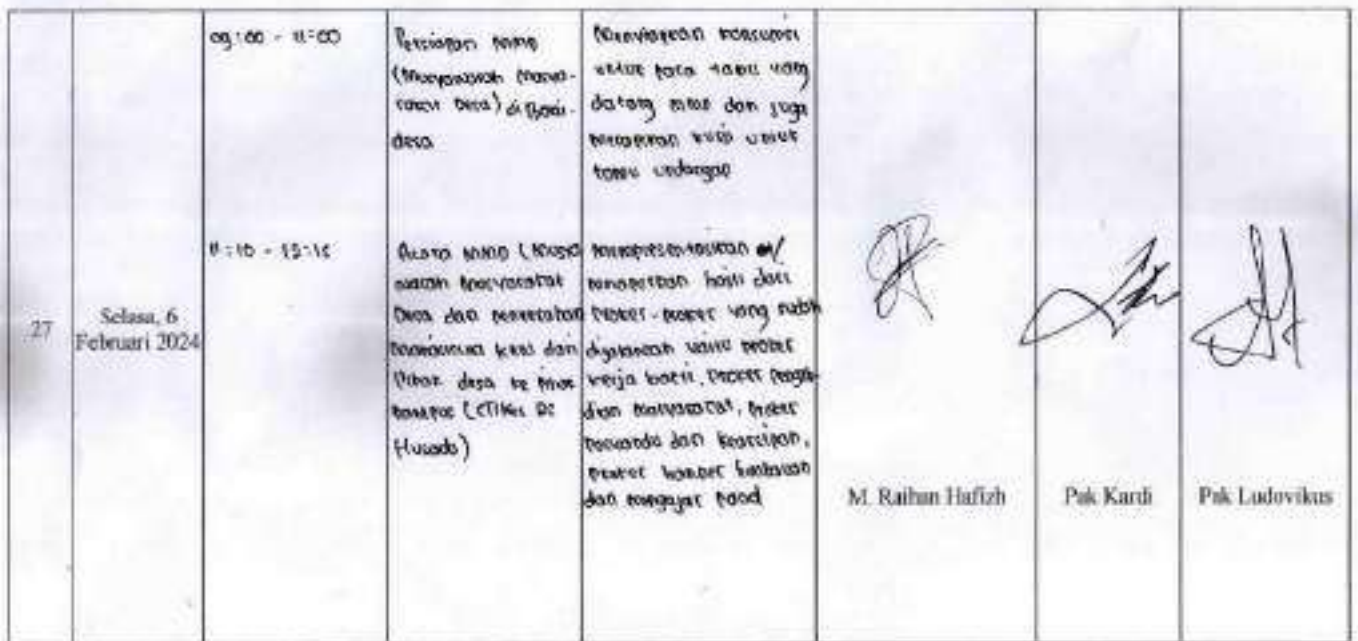 27
Selasa, 6
Februari 2024
09:00 - 11:00
Persiapan MMD
(Musyawarah Masya-
rakat Desa) di Balai-
desa
Menyiapkan konsumsi
untuk para tamu yang
datang MMD dan juga
kursi untuk
tamu undangan
11:10 -
Acara MMD (Musya
warah Masyarakat
Desa dan penyerahan
mahasiswa KKN dari
Pihak desa ke pihak
kampus (STIKes
Husada)
Mempresentasikan
hasil dari
Proker-proker yang sudah
dijalankan yaitu proker
kerja bakti, Proker
dian masyarakat, proker
posyandu dan
proker
dan mengajar paud
M. Raihan Hafizh
Pak Kardi
Pak Ludovikus